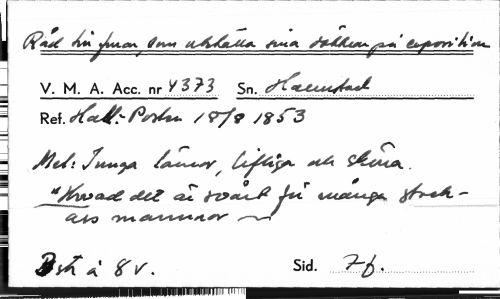 Råd till fruar, som utställa sina döttrar på exposition
V. M. A. Acc. nr 4373 Sn. Halmstad
Ref. Hall.-Posten 18/8 1853
Mel: Junga tärnor, liftiga och sköna.
"Hvad det är svårt för många stack-
ars mammor
8 v.
Sid. 7 f.